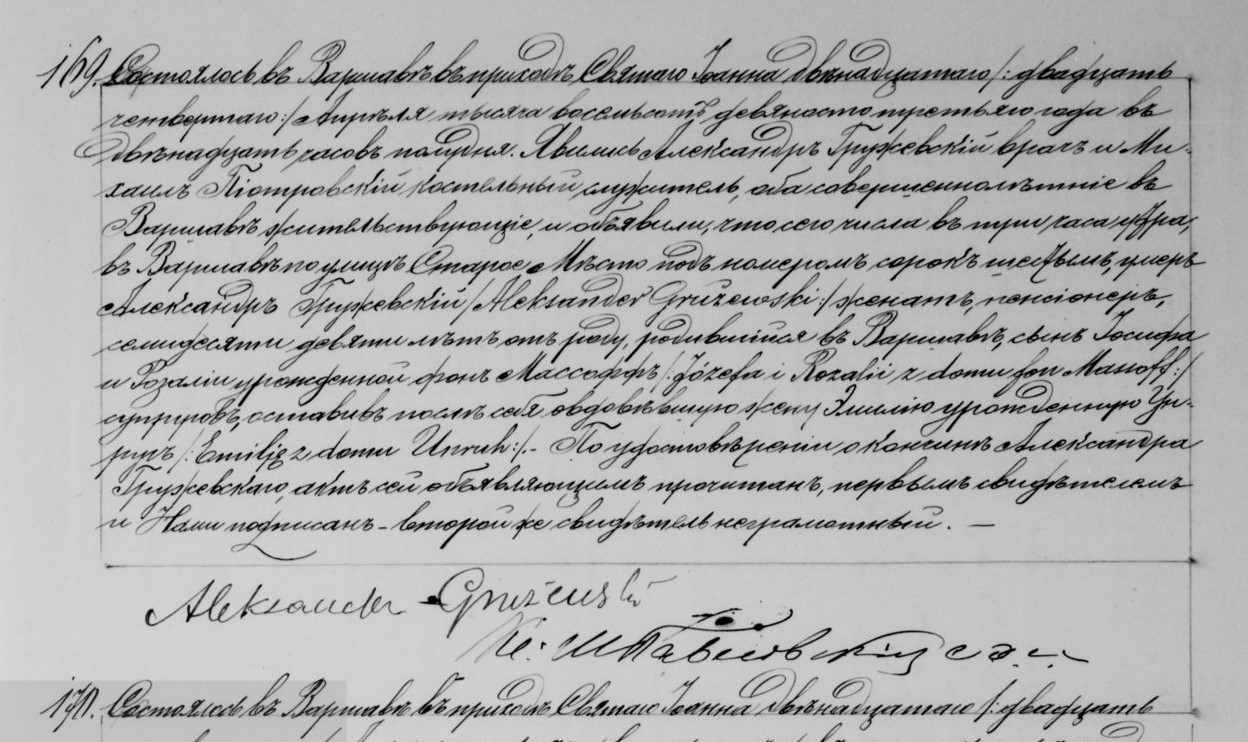 169. Состоялось въ Варшавѣ въ приходѣ Святаго Іоанна двѣнадцатаго /: двадцать
четвертаго :/ Апрѣля тысяча восемьсотъ девяносто третьяго года въ
двѣнадцать часовъ полудня. Явились Александръ Гружевскій врачъ и Ми-
хаилъ Піотровскій костельный служитель, оба совершеннолѣтніе въ
Варшавѣ жительствующіе, и объявили, что сего числа въ три часа утра,
въ Варшавѣ по улицѣ Старое Мѣсто подъ номеромъ сорокъ шестымъ, умеръ
Александръ Гружевскій /Aleksander Grużewski :/ женатъ, пенсіонеръ,
семидесяти девяти лѣтъ отъ роду, родившійся въ Варшавѣ, сынъ Іосифа
и Розаліи урожденной фонъ Массоффъ /: Józefa i Rozalii z domu fon Massoff :/
супруговъ, оставивъ послѣ себя овдовѣвшую жену Эмилію урожденную Ун-
рухъ /: Emilję z domu Unruh :/.- По удостовѣреніи о кончинѣ Александра
Гружевскаго, актъ сей объявляющимъ прочитанъ, первымъ свидѣтелемъ
и Нами подписанъ - второй же свидѣтель неграмотный. —
Aleksander Grużewski
170. Состоялось въ Варшавѣ въ приходѣ Святаго Іоанна двѣнадцатаго /: двадцать